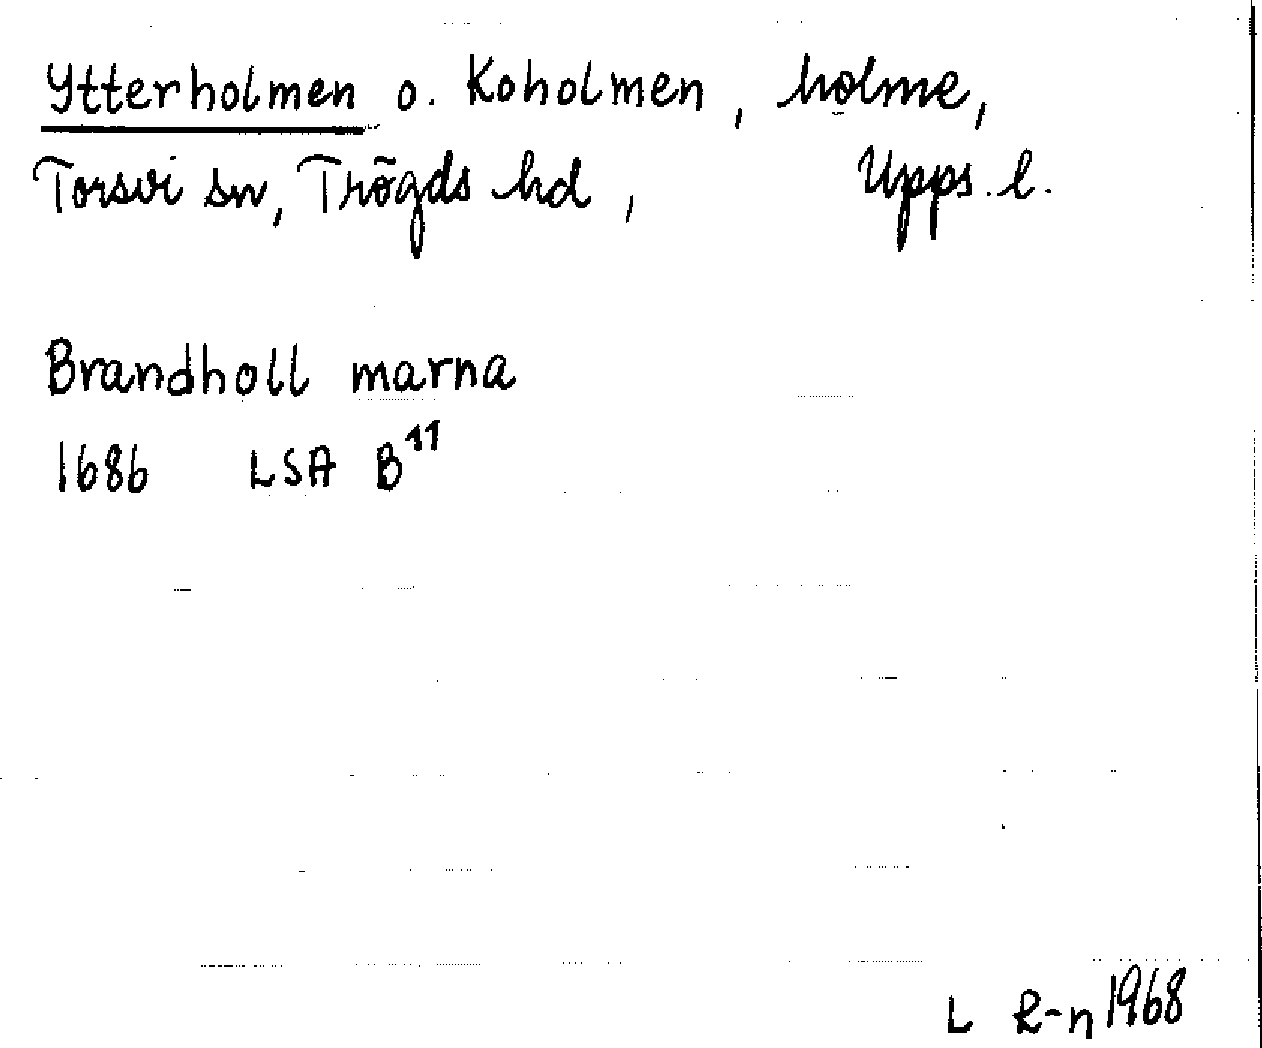 Ytterholmen o. Koholmen, holme,
Torsvi sn, Trögds hd, Upps. l.
Brandholl marna
1686 LSA B¹¹
L R-n 1968